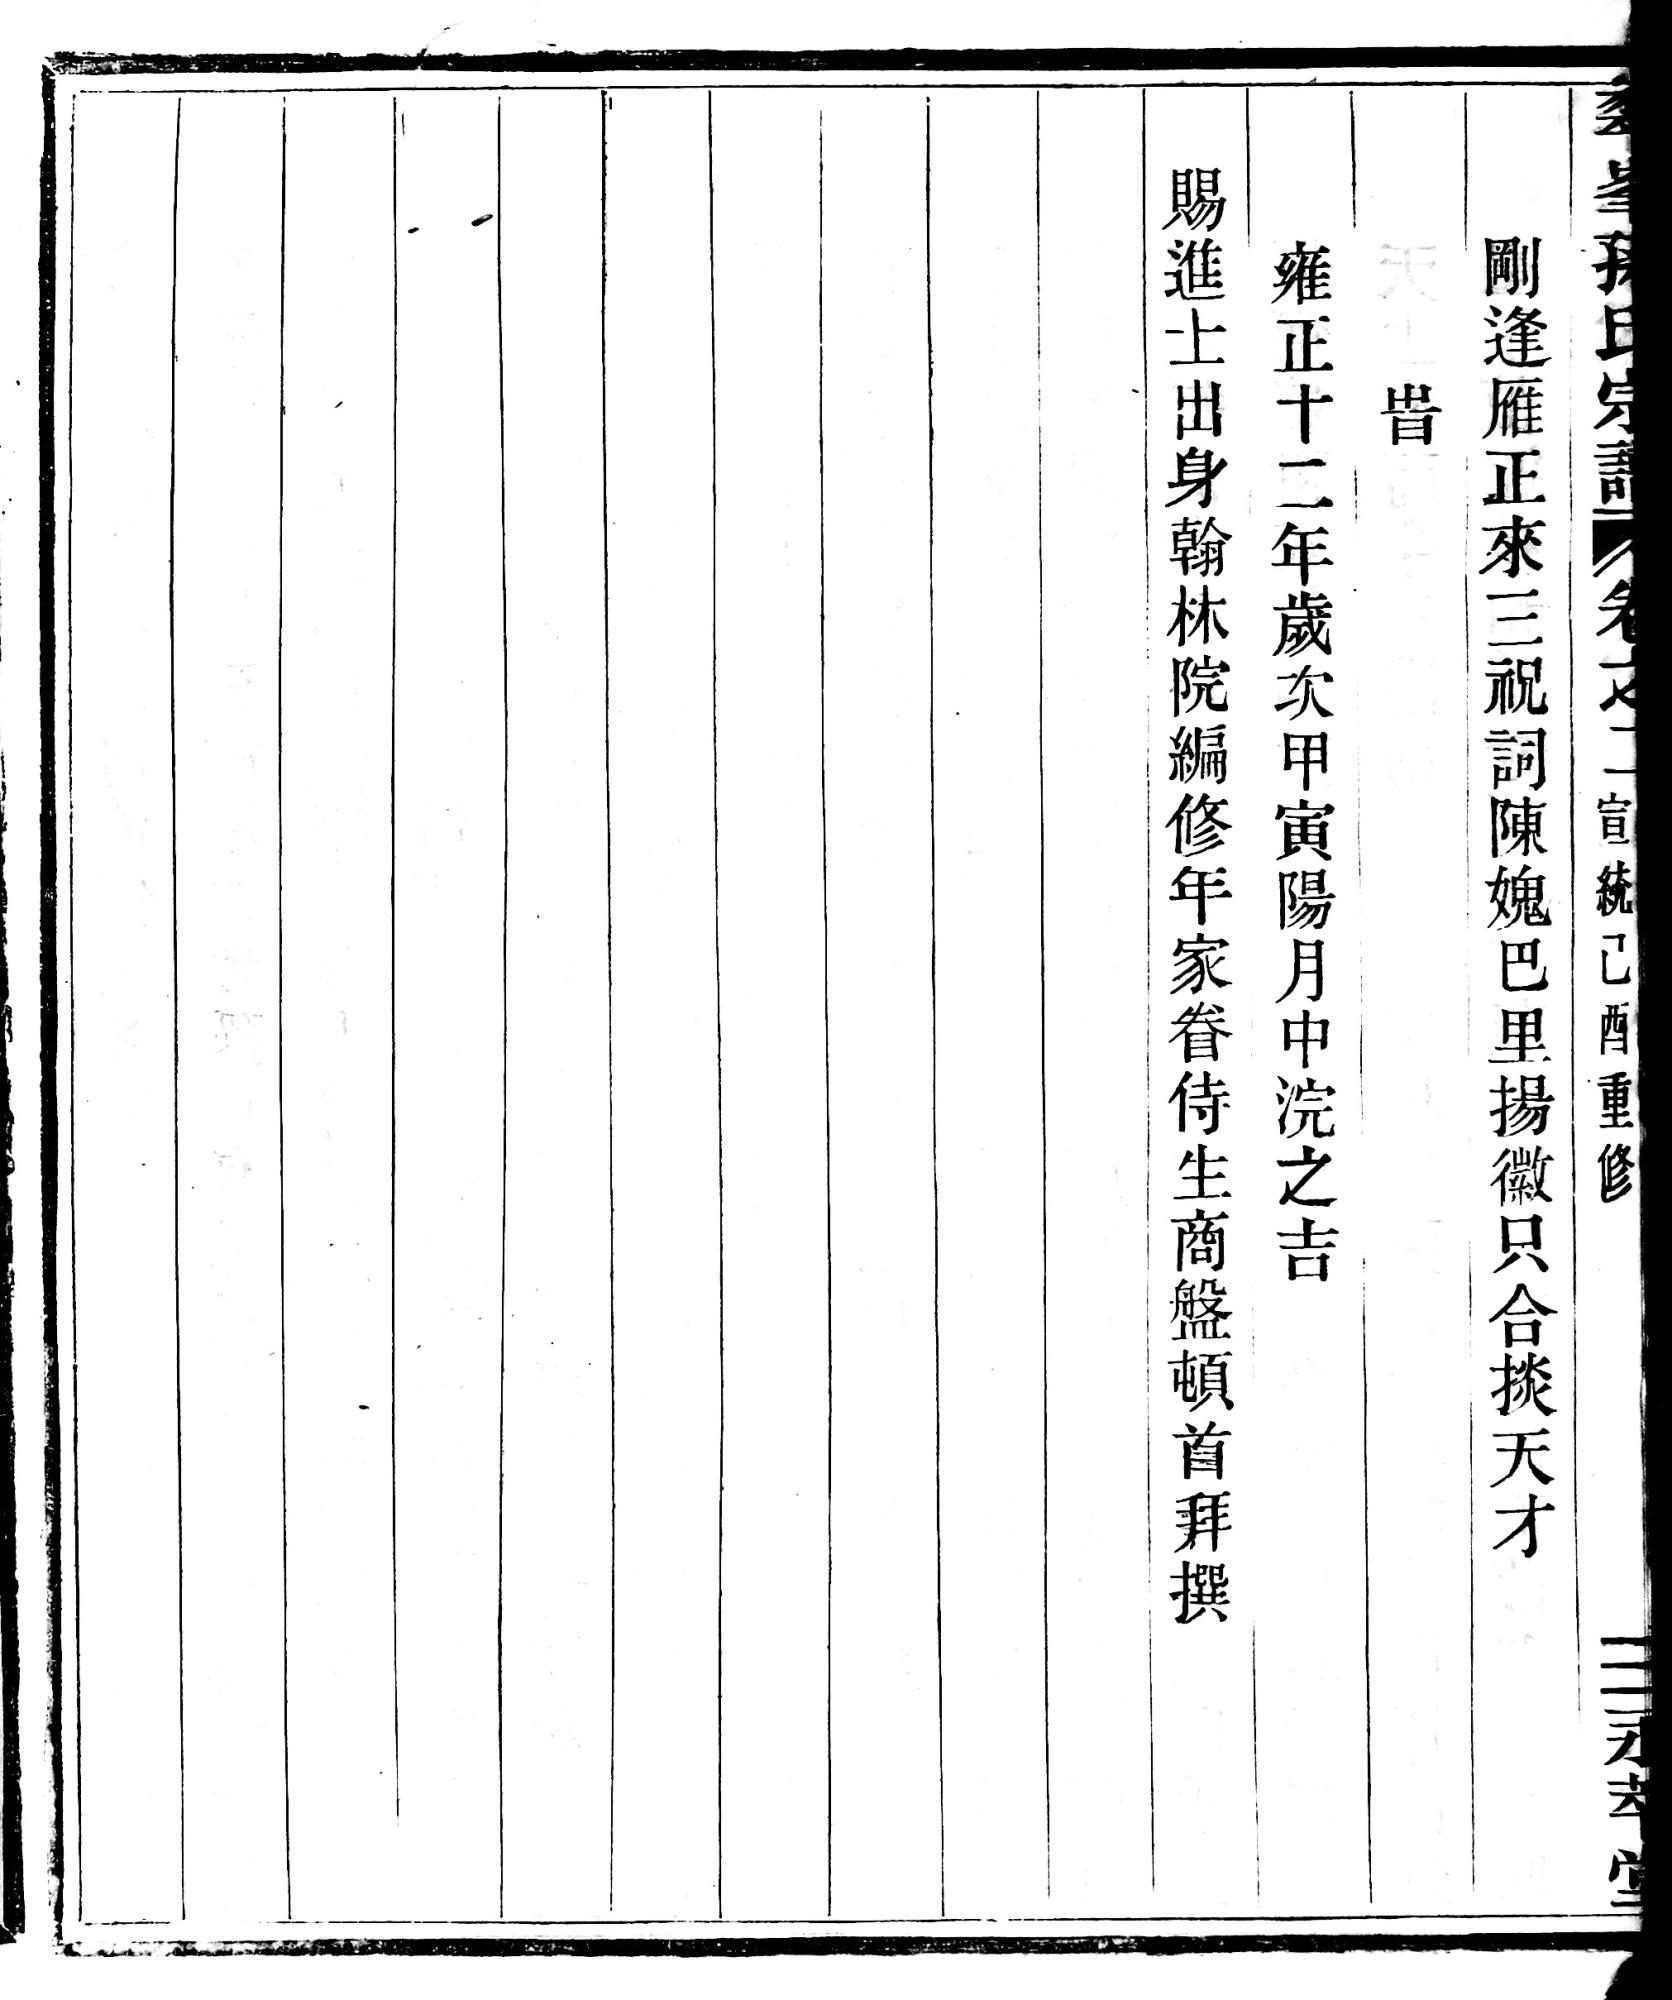 峯孫氏宗譜 卷之二 宣統己酉重修 永萃堂
剛逢雁正來三祝詞陳媿巴里揚徽只合掞天才
旹
雍正十二年歲次甲寅陽月中浣之吉
賜進士出身翰林院編修年家眷侍生商盤頓首拜撰